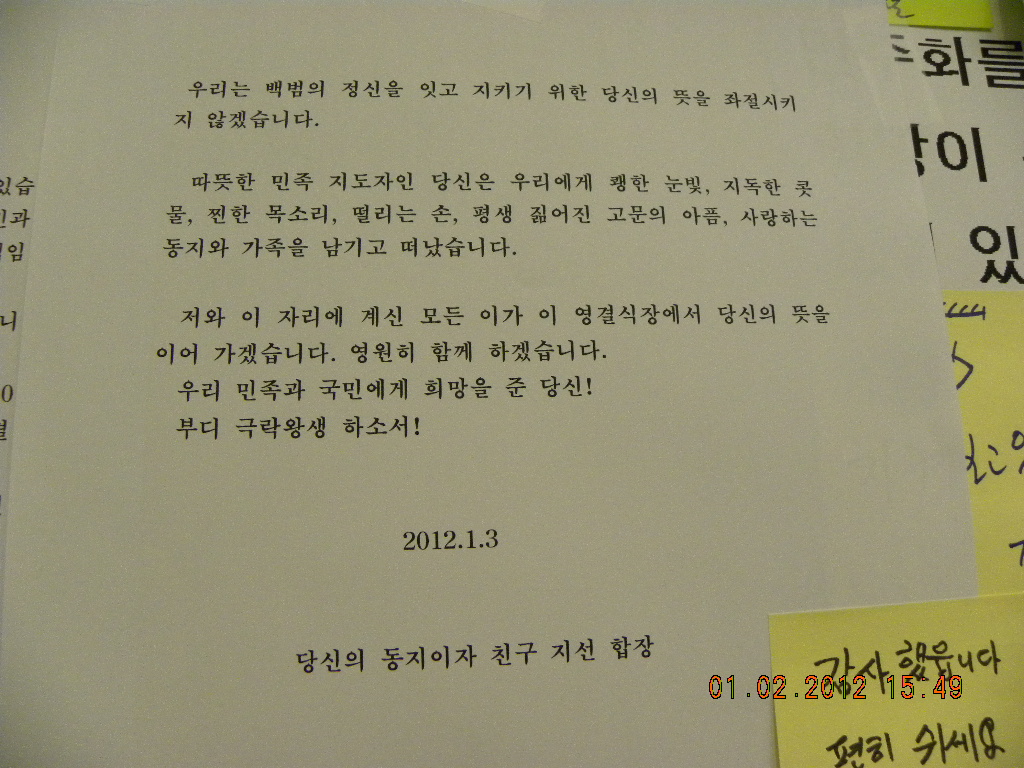 우리는 백범의 정신을 잇고 지키기 위한 당신의 뜻을 좌절시키
지 않겠습니다.
따뜻한 민족 지도자인 당신은 우리에게 쾡한 눈빛, 지독한 콧
물, 찐한 목소리, 떨리는 손, 평생 짊어진 고문의 아픔, 사랑하는
동지와 가족을 남기고 떠났습니다.
저와 이 자리에 계신 모든 이가 이 영결식장에서 당신의 뜻을
이어 가겠습니다. 영원히 함께 하겠습니다.
우리 민족과 국민에게 희망을 준 당신!
부디 극락왕생 하소서!
2012.1.3
당신의 동지이자 친구 지선 합장
감사했읍니다
편히 쉬세요
01.02.2012 15.49
화를
이
있